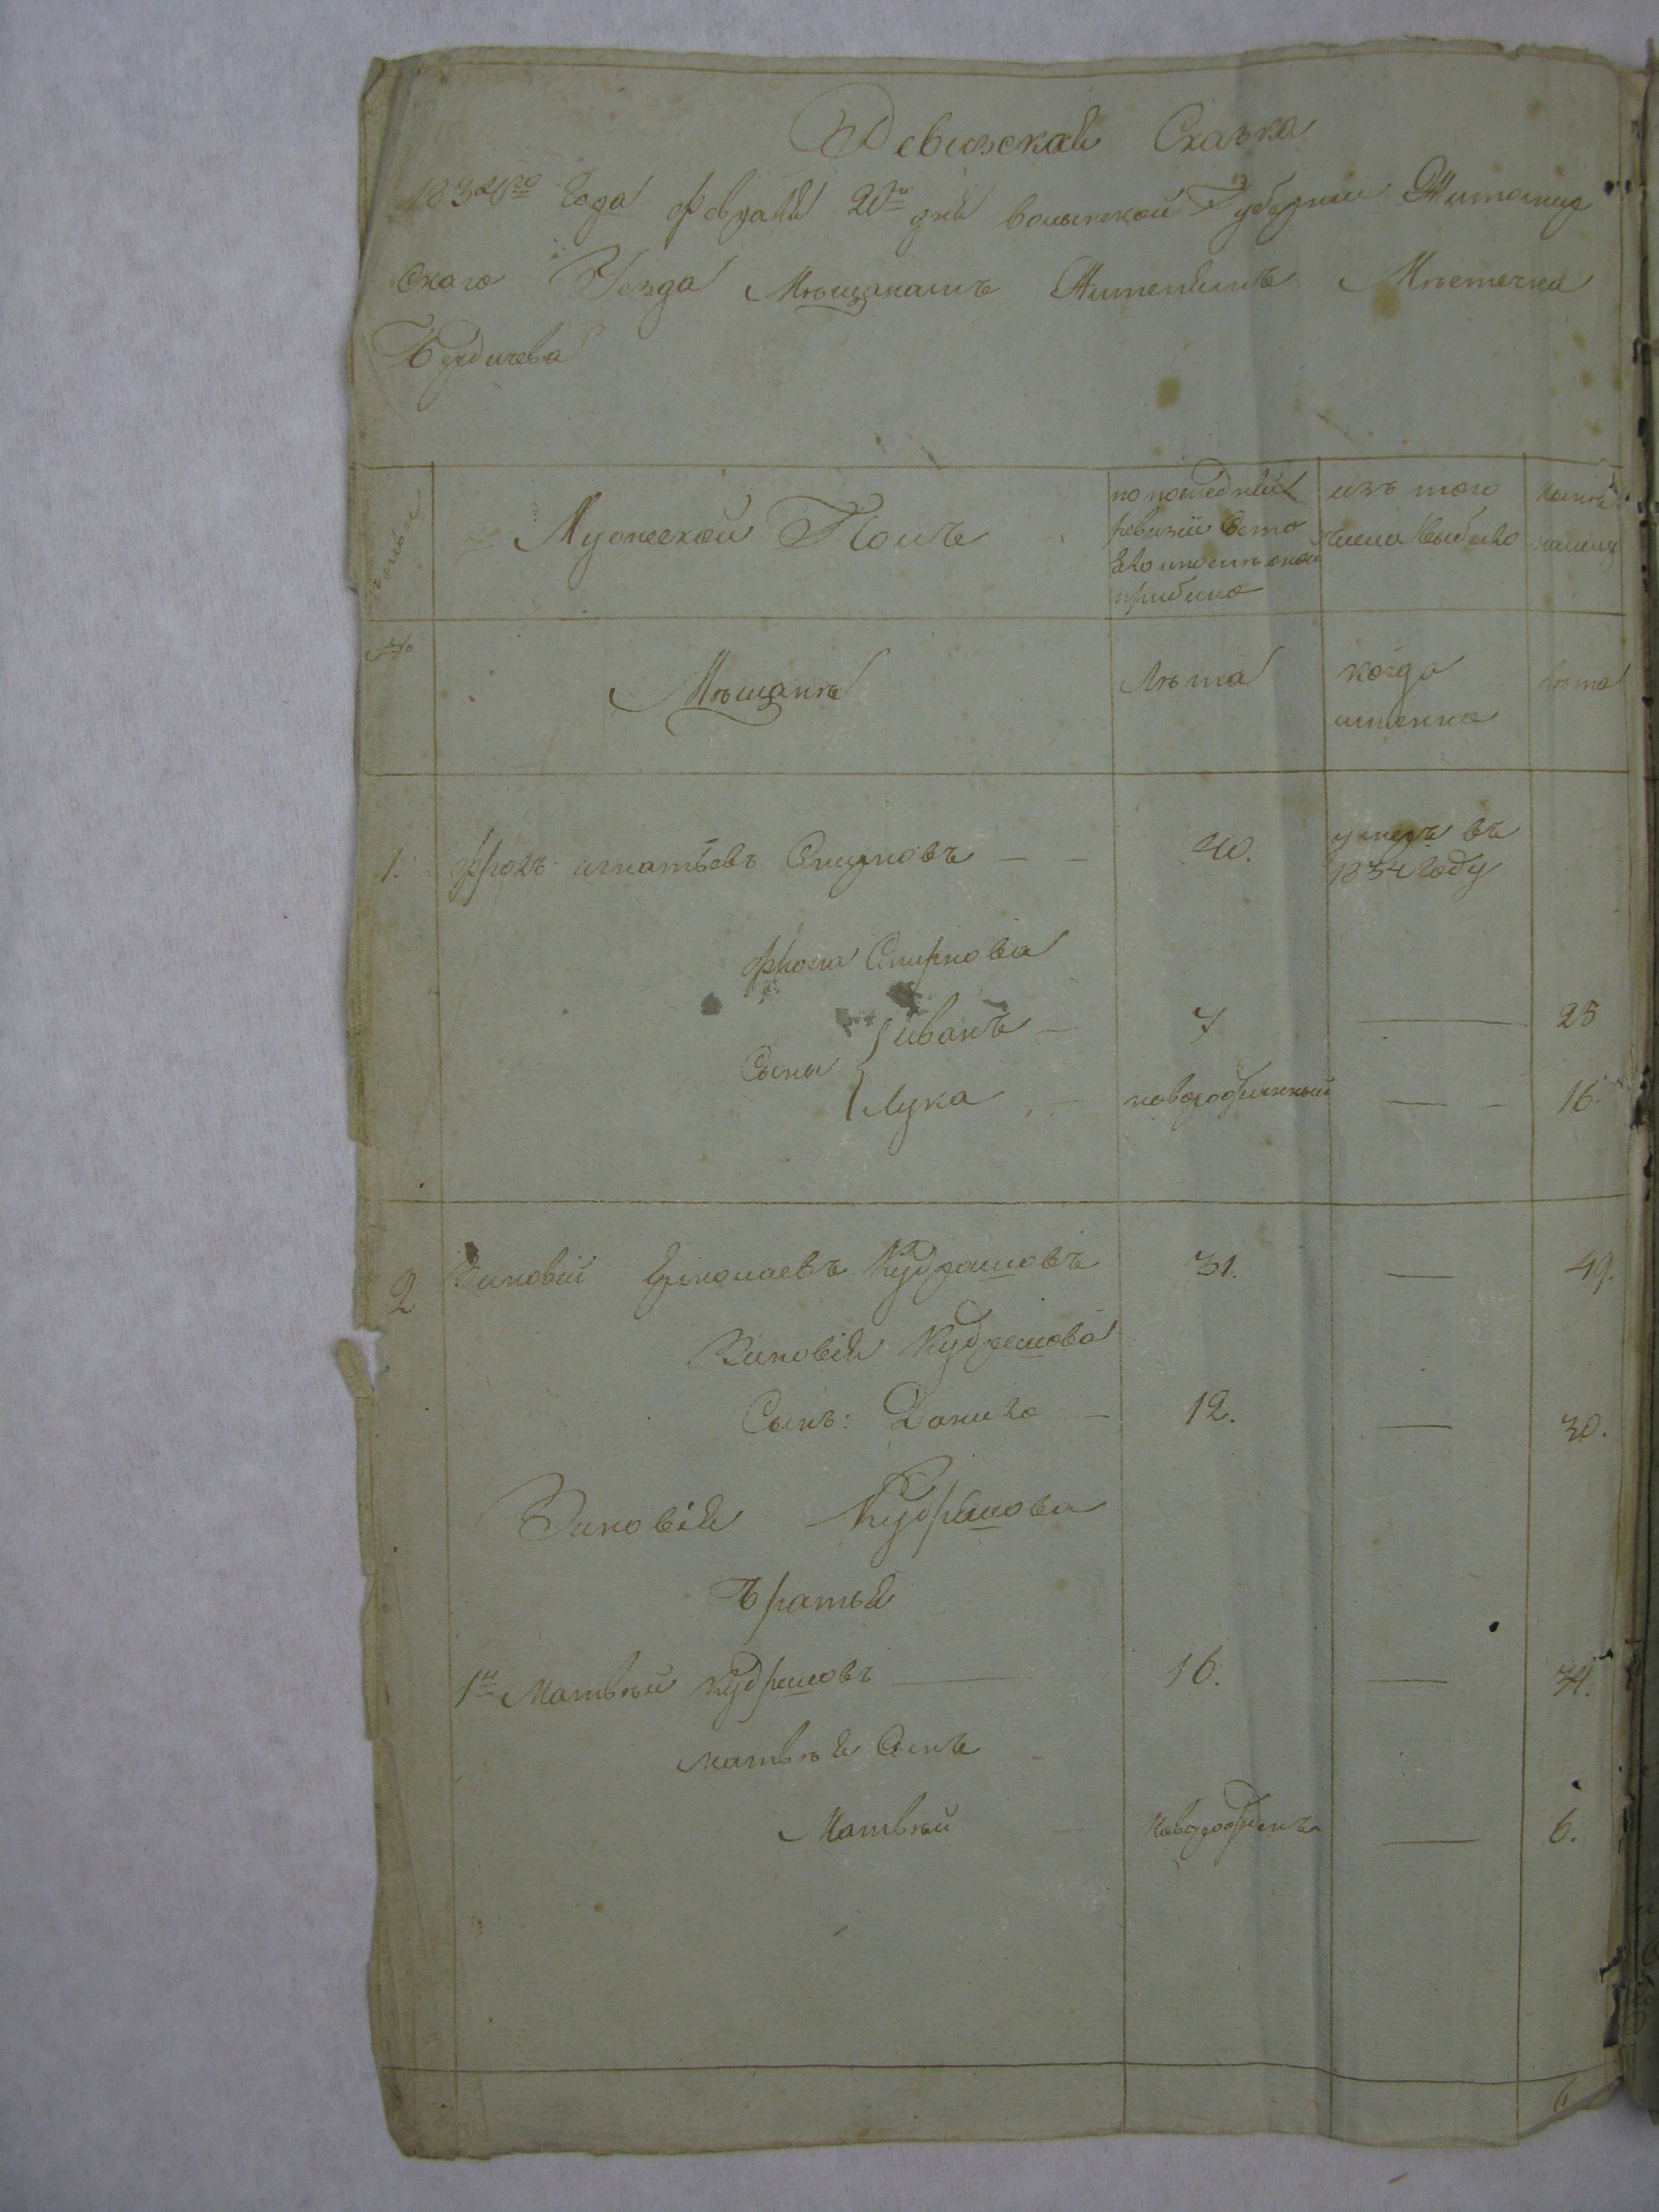 Ревизская Сказка
1834го Года февраля 20го дня волынской Губернии Житомир
скаго Уезда Мѣщанамъ Жителямъ Мѣстечка
Бердичева
Мужеской Полъ
по последней ревизии состояло и после оной прибыло
изъ того числа выбыло
ныне на лицо
Мѣщанѣ
Лѣта
когда именно
лѣта
1. фролъ игнатьевъ Смирновъ — — 40. умеръ въ 1834 Году
фрола Смирнова
Сыны
иванъ — 7 — 25
Лука — новорожденный — — 16.
2 Зиновий Ермолаевъ Кудряшовъ 31. — 49.
Зиновия Кудряшова
Сынъ: Данило — 12. — 30.
Зиновія Кудряшова
братья
1й Матвѣй Кудряшовъ — 16. — 34.
матвѣя Сынъ
Матвѣй — Новорожденъ — 6.
6